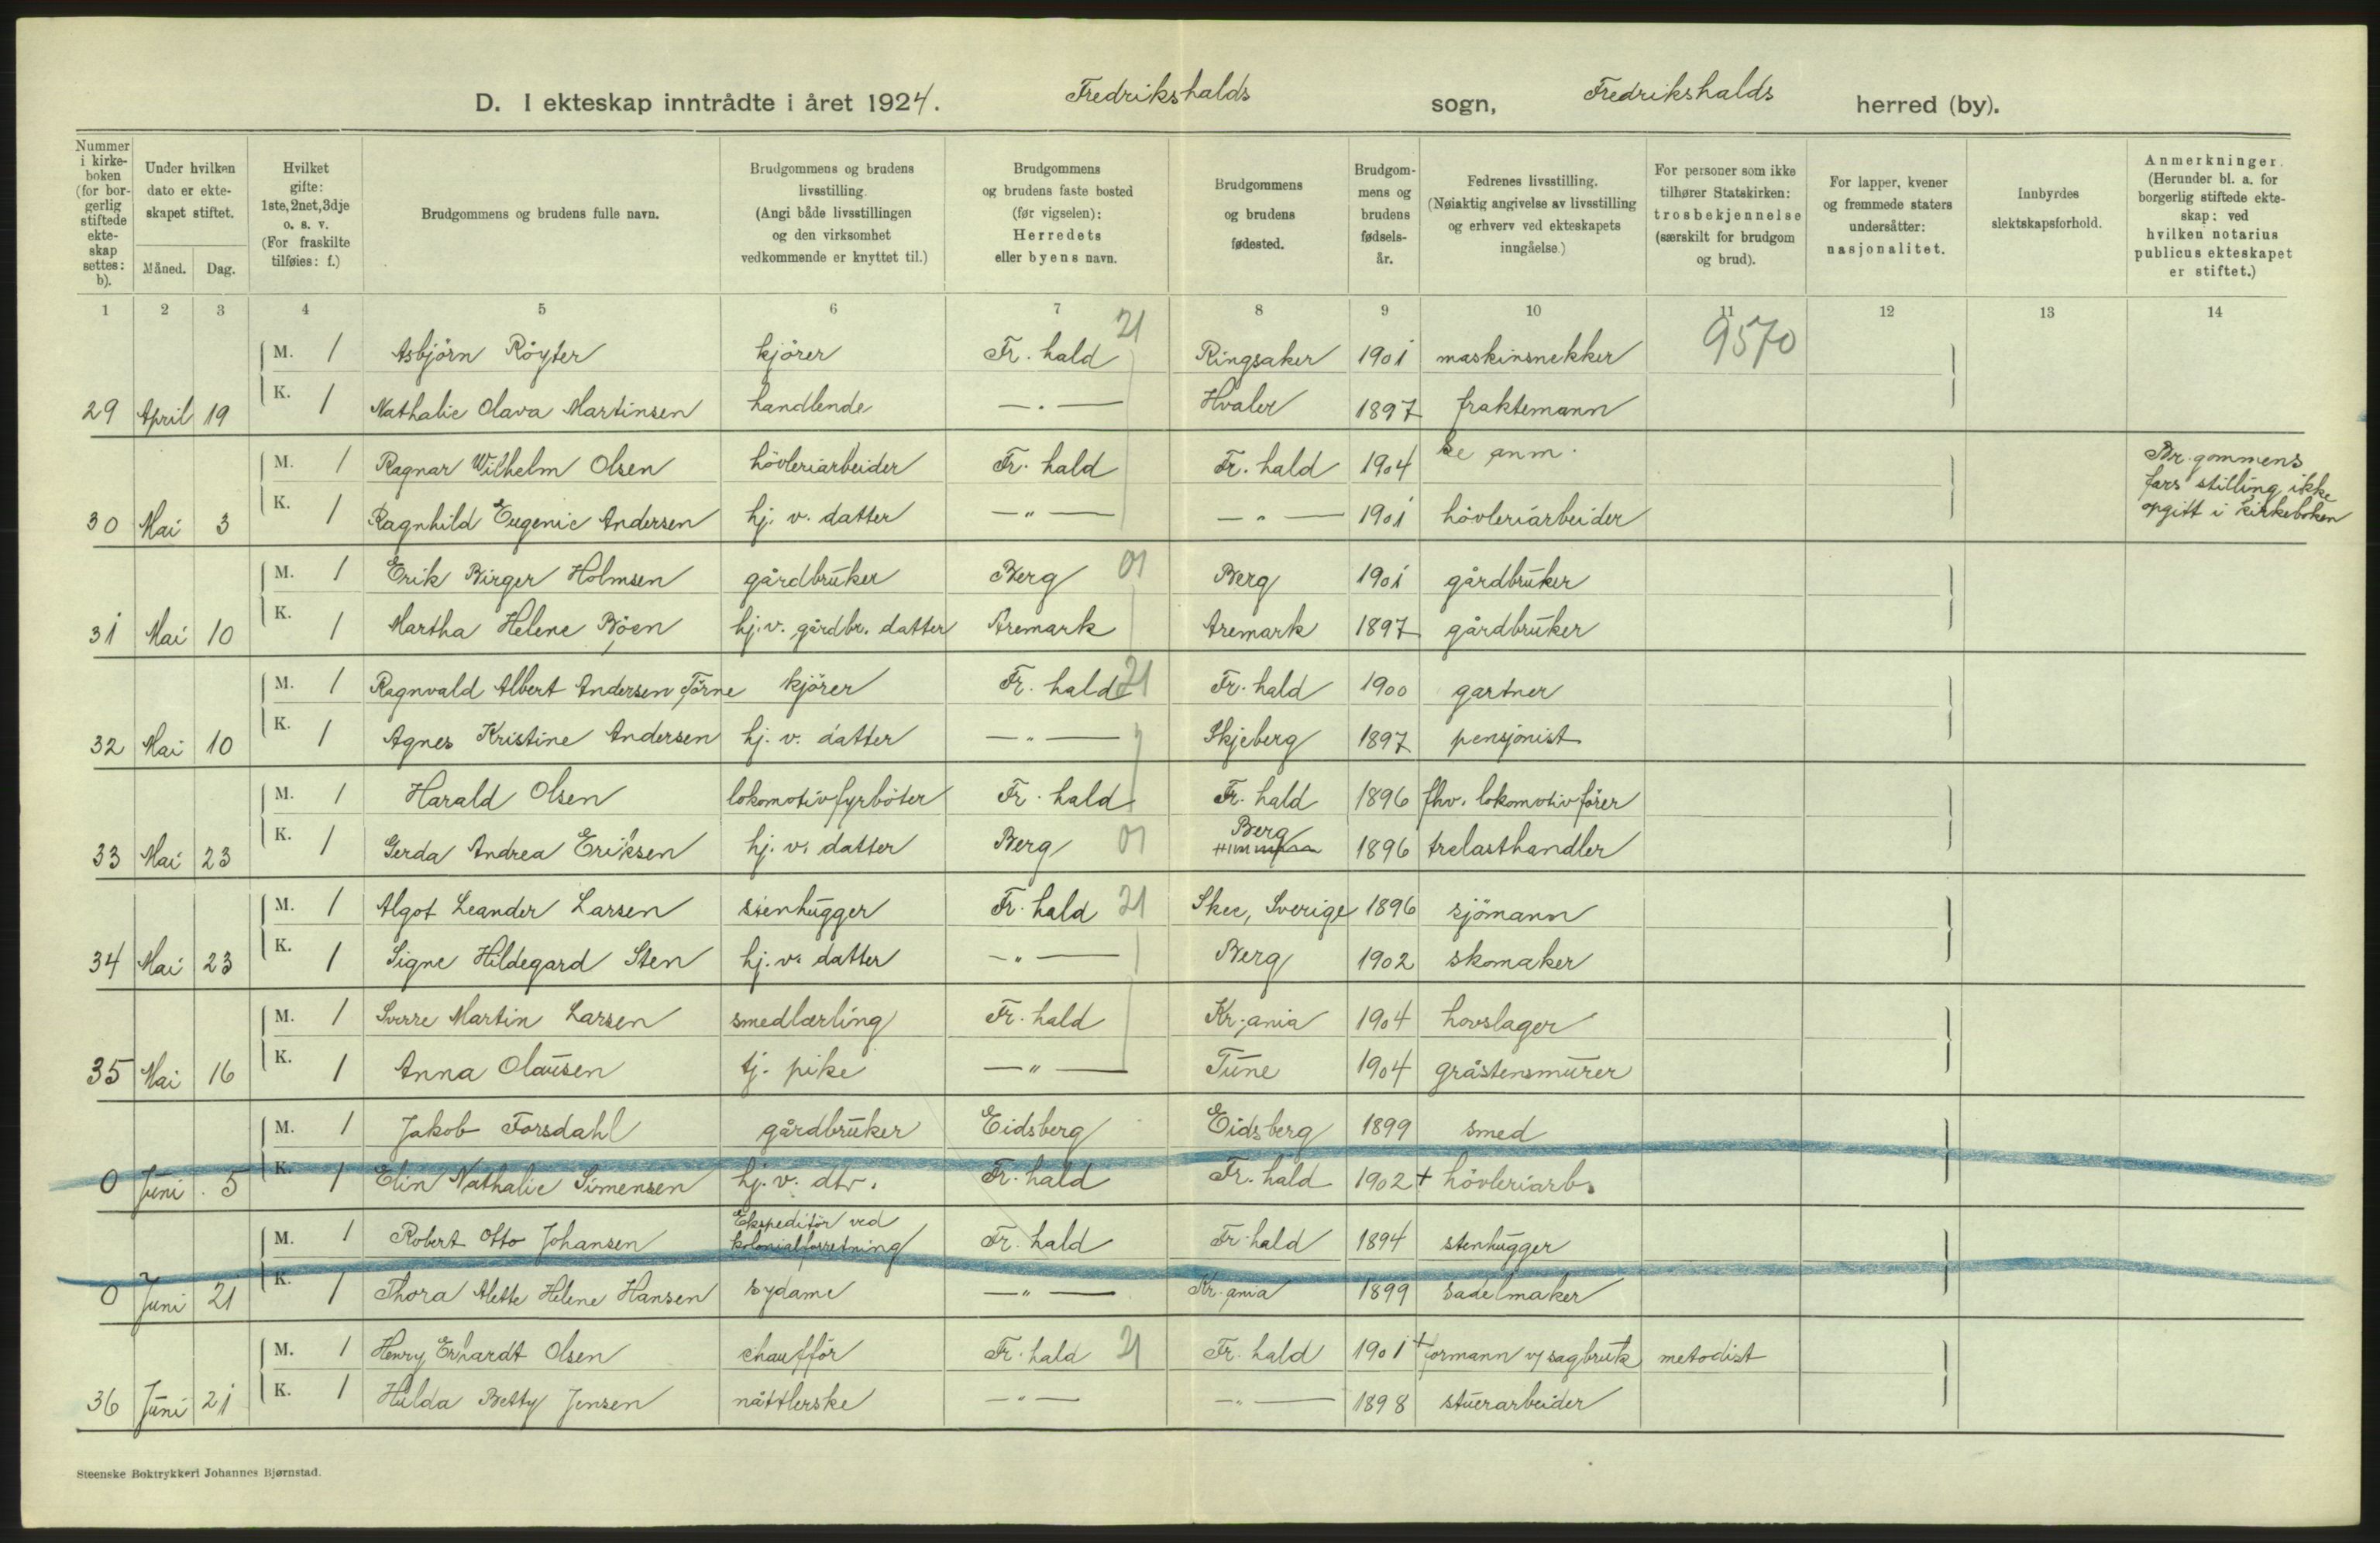 D. I ekteskap inntrådte i året 1924. Fredrikshalds sogn, Fredrikshalds herred (by).
Nummer i kirkeboken (for borgerlig stiftede ekteskap settes: b).
Under hvilken dato er ekteskapet stiftet.
Måned. Dag.
Hvilket gifte: 1ste, 2net, 3dje o. s. v. (For fraskilte tilføies: f.)
Brudgommens og brudens fulle navn.
Brudgommens og brudens livsstilling. (Angi både livsstillingen og den virksomhet vedkommende er knyttet til.)
Brudgommens og brudens faste bosted (før vigselen): Herredets eller byens navn.
Brudgommens og brudens fødested.
Brudgommens og brudens fødselsår.
Fedrenes livsstilling. (Nøiaktig angivelse av livsstilling og erhverv ved ekteskapets inngåelse.)
For personer som ikke tilhører Statskirken: trosbekjennelse (særskilt for brudgom og brud).
For lapper, kvener og fremmede staters undersåtter: nasjonalitet.
Innbyrdes slektskapsforhold.
Anmerkninger. (Herunder bl. a. for borgerlig stiftede ekteskap: ved hvilken notarius publicus ekteskapet er stiftet.)
1 2 3 4 5 6 7 8 9 10 11 12 13 14
M. 1 Asbjörn Röyter kjörer Fr. hald 21 Ringsaker 1901 maskinsnekker 9570
29 April 19 K. 1 Nathalie Olava Martinsen handlende — . — Hvaler 1897 fraktemann
M. 1 Ragnar Wilhelm Olsen hövleriarbeider Fr. hald Fr. hald 1904 Se anm. Br.gommens fars stilling ikke opgitt i kirkeboken
30 Mai 3 K. 1 Ragnhild Eugenie Andersen hj. v. datter — " — — " — 1901 hövleriarbeider
M. 1 Erik Birger Holmsen gårdbruker Berg 01 Berg 1901 gårdbruker
31 Mai 10 K. 1 Martha Helene Böen hj. v. gårdbr. datter Aremark Aremark 1897 gårdbruker
M. 1 Ragnvald Albert Andersen Törne kjörer Fr. hald 21 Fr. hald 1900 gartner
32 Mai 10 K. 1 Agnes Kristine Andersen hj. v. datter — " — Skjeberg 1897 pensjonist
M. 1 Harald Olsen lokomotivfyrböter Fr. hald Fr. hald 1896 fhv. lokomotivförer
33 Mai 23 K. 1 Gerda Andrea Eriksen hj. v. datter Berg 01 Berg 1896 trelasthandler
M. 1 Algot Leander Larsen stenhugger Fr. hald 21 Skee, Sverige 1896 sjömann
34 Mai 23 K. 1 Signe Hildegard Sten hj. v. datter — " — Berg 1902 skomaker
M. 1 Sverre Martin Larsen smedlærling Fr. hald Kr.ania 1904 hovslager
35 Mai 16 K. 1 Anna Olausen tj. pike — " — Tune 1904 gråstensmurer
M. 1 Jakob Forsdahl gårdbruker Eidsberg Eidsberg 1899 smed
0 Juni 5 K. 1 Elin Nathalie Simensen hj. v. dtr. Fr. hald Fr. hald 1902 + hövleriarb.
M. 1 Robert Otto Johansen Ekspeditör ved kolonialforretning Fr. hald Fr. hald 1894 stenhugger
0 Juni 21 K. 1 Thora Alette Helene Hansen sydame — " — Kr.ania 1899 sadelmaker
M. 1 Henry Erhardt Olsen chaufför Fr. hald 21 Fr. hald 1901 + formann v/ sagbruk metodist
36 Juni 21 K. 1 Hilda Betty Jensen nåttlerske — " — — " — 1898 stuerarbeider
Steenske Boktrykkeri Johannes Bjørnstad.